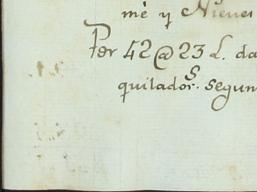 mê y Nieves
Per 42@23 L. da
quilador.s segun